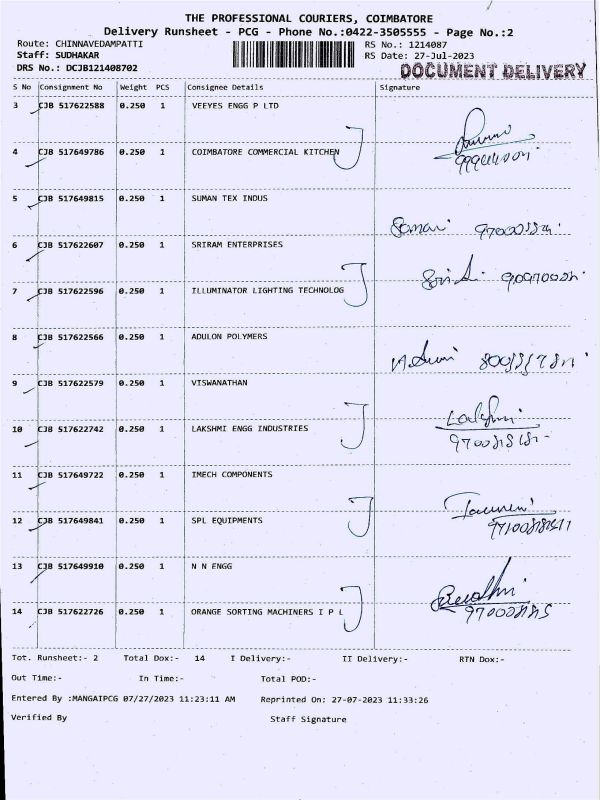 THE PROFESSIONAL COURIERS, COIMBATORE
Delivery Runsheet - PCG - Phone No.:0422-3505555 - Page No.:2
Route: CHINNAVEDAMPATTI RS No.: 1214087
Staff: SUDHAKAR RS Date: 27-Jul-2023
DRS No.: DCJB121408702 DOCUMENT DELIVERY
S No Consignment No Weight PCS Consignee Details Signature
3 CJB 517622588 0.250 1 VEEYES ENGG P LTD
4 CJB 517649786 0.250 1 COIMBATORE COMMERCIAL KITCHEN
5 CJB 517649815 0.250 1 SUMAN TEX INDUS
6 CJB 517622607 0.250 1 SRIRAM ENTERPRISES
7 CJB 517622596 0.250 1 ILLUMINATOR LIGHTING TECHNOLOG
8 CJB 517622566 0.250 1 ADULON POLYMERS
9 CJB 517622579 0.250 1 VISWANATHAN
10 CJB 517622742 0.250 1 LAKSHMI ENGG INDUSTRIES
Lakshmi
11 CJB 517649722 0.250 1 IMECH COMPONENTS
12 CJB 517649841 0.250 1 SPL EQUIPMENTS
13 CJB 517649910 0.250 1 N N ENGG
14 CJB 517622726 0.250 1 ORANGE SORTING MACHINERS I P L
Tot. Runsheet:- 2 Total Dox:- 14 I Delivery:- II Delivery:- RTN Dox:-
Out Time:- In Time:- Total POD:-
Entered By :MANGAIPCG 07/27/2023 11:23:11 AM Reprinted On: 27-07-2023 11:33:26
Verified By Staff Signature